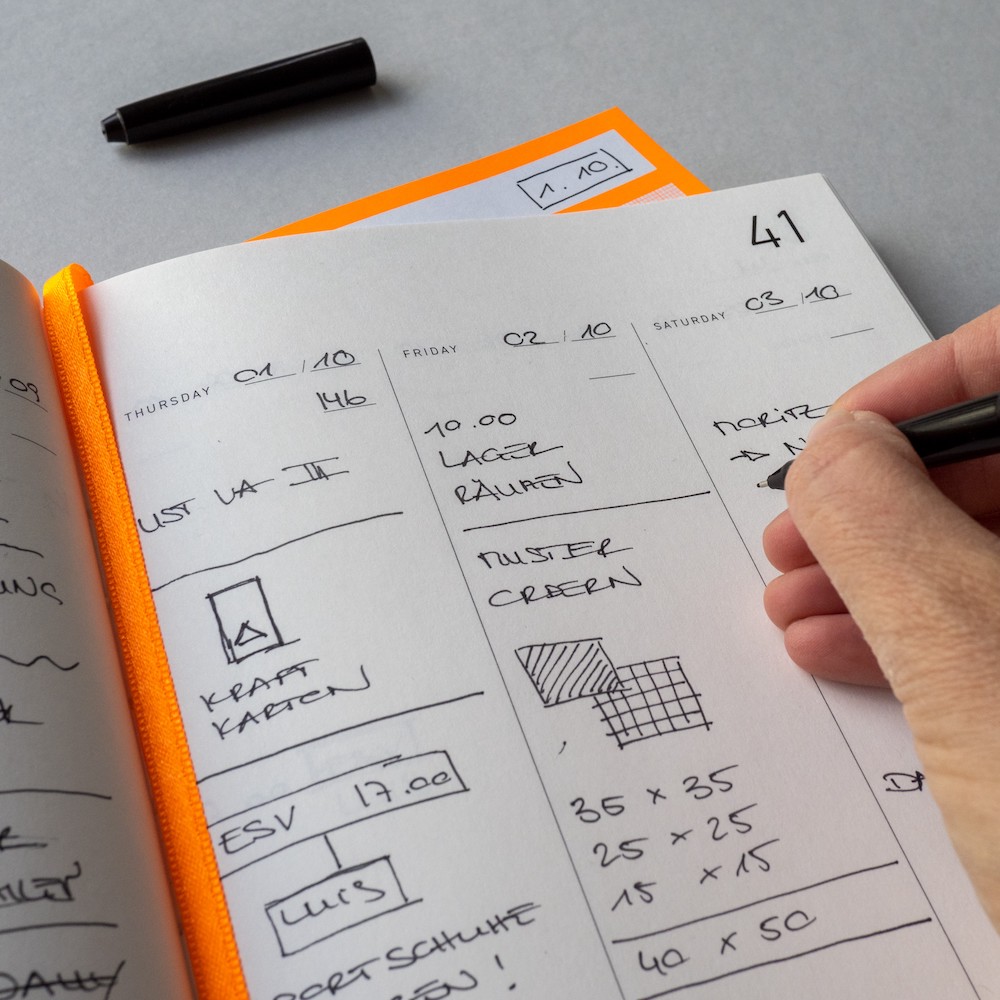 1. 10.
41
THURSDAY 01 / 10
146
UST VA III
KRAFT
KARTEN
ESV 17.00
LUIS
FRIDAY 02 / 10
10.00
LAGER
RÄUMEN
MUSTER
ORDERN
35 x 35
25 x 25
15 x 15
40 x 50
SATURDAY 03 / 10
MORITZ
09